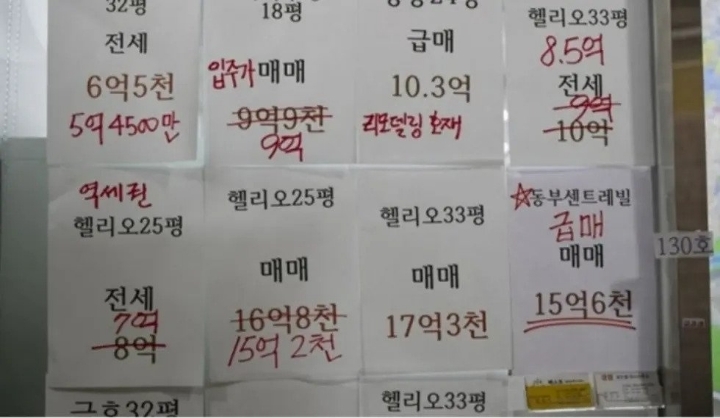 32평
전세
6억5천
5억4500만
18평
입주가 매매
9억9천
9억
급매
10.3억
리모델링 호재
헬리오33평
8.5억
전세
9억
10억
역세권
헬리오25평
전세
7억
8억
헬리오25평
매매
16억8천
15억 2천
헬리오33평
매매
17억3천
☆동부센트레빌
급매
매매
15억6천
130호
금호32평
헬리오33평